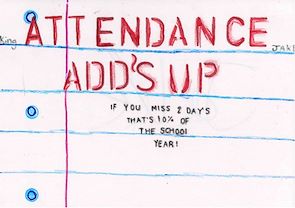 ATTENDANCE
ADD'S UP
IF YOU MISS 2 DAY'S
THAT'S 10% OF
THE SCHOOl
YEAR!